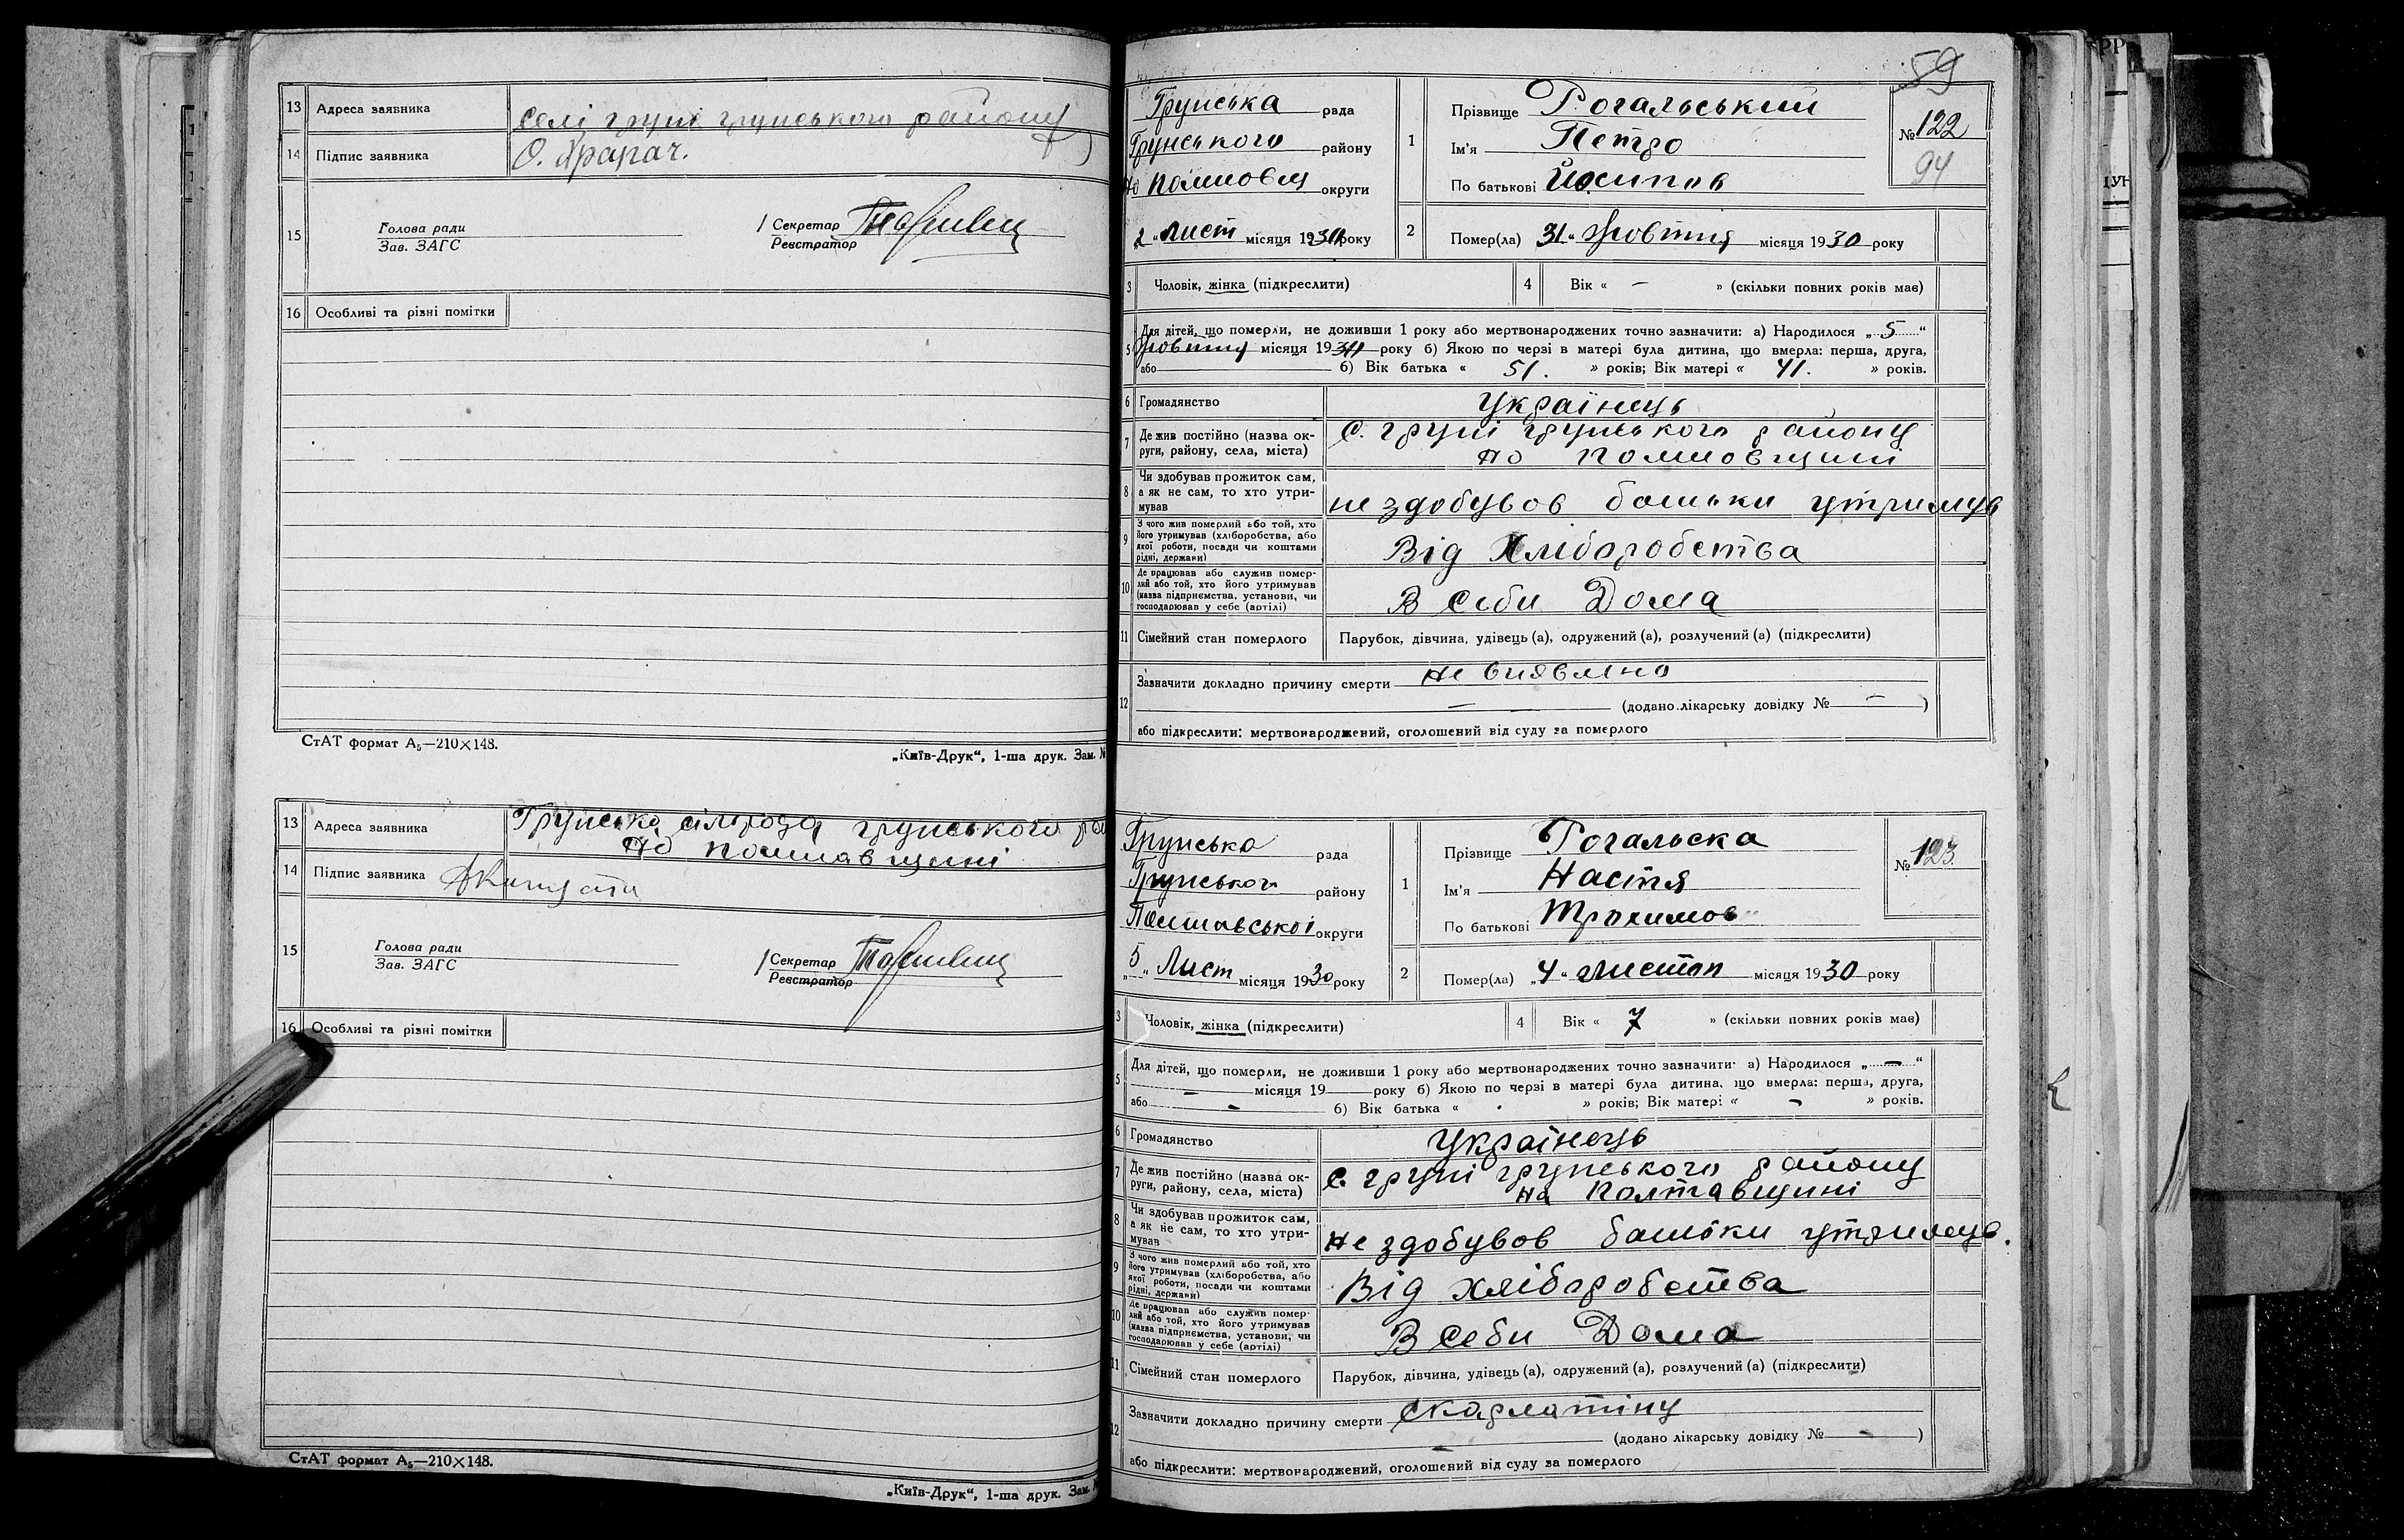 13 Адреса заявника
Селі груні грунського району
14 Підпис заявника
15
Голова ради
Зав. ЗАГС
Секретар
Реєстратор
16 Особливі та різні помітки
СтАТ формат А₅—210×148.
„Київ-Друк“, 1-ша друк. Зам. №
13 Адреса заявника
Грунська сільрада грунського
на полтавщині
14 Підпис заявника
15
Голова ради
Зав. ЗАГС
Секретар
Реєстратор
16 Особливі та різні помітки
СтАТ формат А₅—210×148.
„Київ-Друк“, 1-ша друк. Зам.
59
Грунська рада
Грунського району
округи
2 „ Лист місяця 1930 року
1
Прізвище Рогальський
Ім'я Петро
По батькові Йосипов
№ 122
94
2 Помер(ла) 31 „ Жовтня місяця 1930 року
3 Чоловік, жінка (підкреслити)
4 Вік « — » (скільки повних років має)
5 Для дітей, що померли, не доживши 1 року або мертвонароджених точно зазначити: а) Народилося „ 5 “
Жовтня місяця 19 року б) Якою по черзі в матері була дитина, що вмерла: перша, друга,
або б) Вік батька « 51. » років; Вік матері « 41. » років.
6 Громадянство Українець
7 Де жив постійно (назва ок-
руги, району, села, міста)
с. груні грунського району
на полтавщині
8 Чи здобував прожиток сам,
а як не сам, то хто утри-
мував
не здобував батьки утримув
9 З чого жив померлий або той, хто
його утримував (хліборобства, або
якої роботи, посади чи коштами
рідні, держави)
Від Хліборобства
10 Де працював або служив помер-
лий або той, хто його утримував
(назва підприємства, установи, чи
господарював у себе (артілі)
В себи Дома
11 Сімейний стан померлого
Парубок, дівчина, удівець (а), одружений (а), розлучений (а) (підкреслити)
12 Зазначити докладно причину смерти не виявлено
— (додано лікарську довідку № — )
або підкреслити: мертвонароджений, оголошений від суду за померлого
Грунська рада
Грунського району
Полтавської округи
„ 5 “ Лист місяця 1930 року
1
Прізвище Рогальска
Ім'я Настя
По батькові Трохимов
№ 123
2 Помер(ла) „ 4 “ Листоп місяця 1930 року
3 Чоловік, жінка (підкреслити)
4 Вік « 7 » (скільки повних років має)
5 Для дітей, що померли, не доживши 1 року або мертвонароджених точно зазначити: а) Народилося „ — “
— місяця 19 року б) Якою по черзі в матері була дитина, що вмерла: перша, друга,
або - б) Вік батька « - » років; Вік матері « - » років.
6 Громадянство Українець
7 Де жив постійно (назва ок-
руги, району, села, міста)
с. груні грунського району
на Полтавщині
8 Чи здобував прожиток сам,
а як не сам, то хто утри-
мував
не здобував батьки утримув.
9 З чого жив померлий або той, хто
його утримував (хліборобства, або
якої роботи, посади чи коштами
рідні, держави)
Від хліборобства
10 Де працював або служив помер-
лий або той, хто його утримував
(назва підприємства, установи, чи
господарював у себе (артілі)
В себи Дома
11 Сімейний стан померлого
Парубок, дівчина, удівець (а), одружений (а), розлучений (а) (підкреслити)
12 Зазначити докладно причину смерти скарлатіну
— (додано лікарську довідку № - )
або підкреслити: мертвонароджений, оголошений від суду за померлого